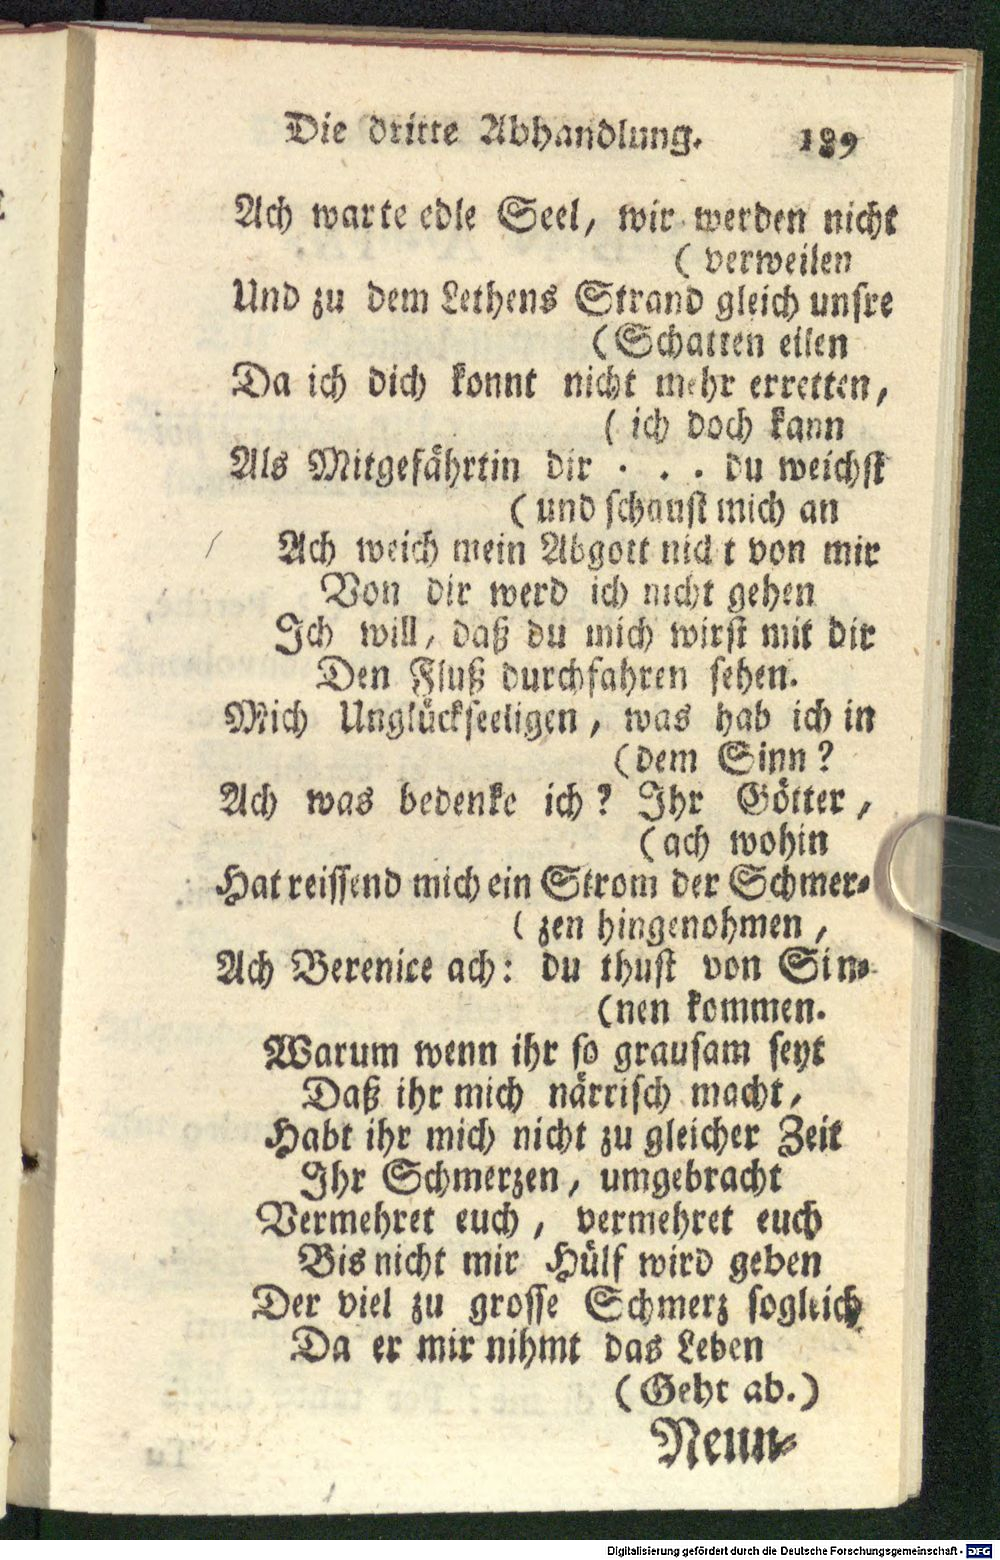 Die dritte Abhandlung. 189
Ach warte edle Seel, wir werden nicht
( verweilen
Und zu dem Lethens Strand gleich unsre
(Schatten eilen
Da ich dich konnt nicht mehr erretten,
( ich doch kann
Als Mitgefährtin dir . . . du weichst
( und schaust mich an
Ach weich mein Abgott nicht von mir
Von dir werd ich nicht gehen
Ich will, daß du mich wirst mit dir
Den Fluß durchfahren sehen.
Mich Unglückseeligen, was hab ich in
(dem Sinn?
Ach was bedenke ich? Ihr Götter,
(ach wohin
Hat reissend mich ein Strom der Schmer-
( zen hingenohmen,
Ach Berenice ach: du thust von Sin-
(nen kommen.
Warum wenn ihr so grausam seyt
Daß ihr mich närrisch macht,
Habt ihr mich nicht zu gleicher Zeit
Ihr Schmerzen, umgebracht
Vermehret euch, vermehret euch
Bis nicht mir Hülf wird geben
Der viel zu grosse Schmerz sogleich
Da er mir nihmt das Leben
(Geht ab.)
Neun-
Digitalisierung gefördert durch die Deutsche Forschungsgemeinschaft - DFG